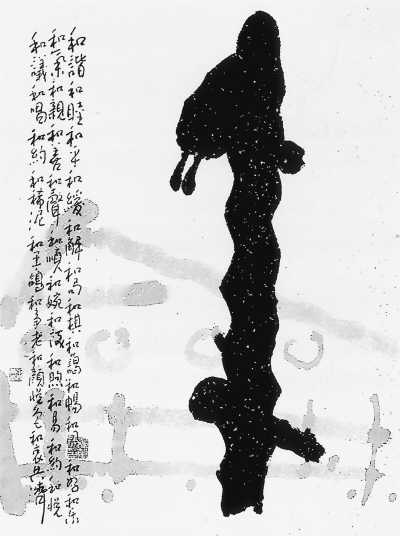 和諧和睦和平和緩和解和為和棋和藹和暢和風和好和樂
和氣和親和善和聲和順和婉和談和煦和易和約和悅
和議和唱和約和稀泥和平鴿和事老和顏悅色和衷共濟